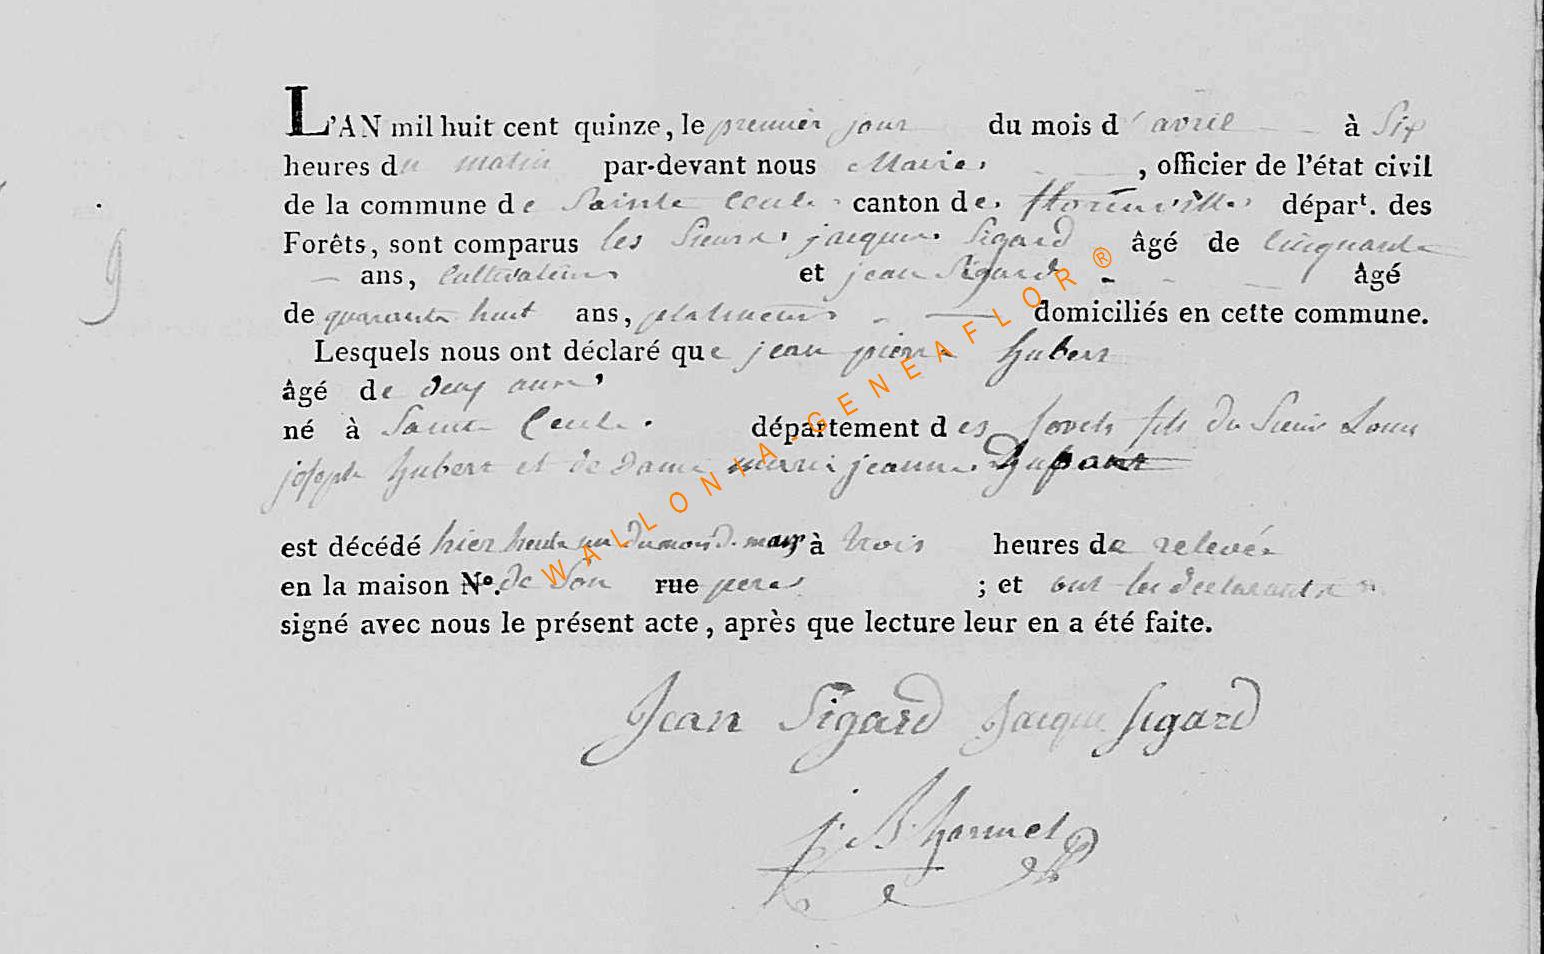 L'AN mil huit cent quinze, le premier jour du mois d'avril à Six
heures du matin par-devant nous Maire, officier de l'état civil
de la commune de Sainte Cecile canton de florenville départ. des
Forêts, sont comparus les Sieurs jacques Sigard âgé de cinquante
ans, Cultivateur et jean Sigard âgé
9
de quarante huit ans, platineur domiciliés en cette commune.
Lesquels nous ont déclaré que jean pierre hubert
âgé de deux ans
né à Sainte Cecile département des forets fils du Sieur Louis
joseph hubert et de dame marie jeanne
est décédé hier trente un du mois de mars à trois heures de relevée
en la maison No. de Son rue pere ; et ont les declarants
signé avec nous le présent acte, après que lecture leur en a été faite.
Jean Sigard Jacque Sigard
j. B. hannel
WALLONIA-GENEAFLOR ®